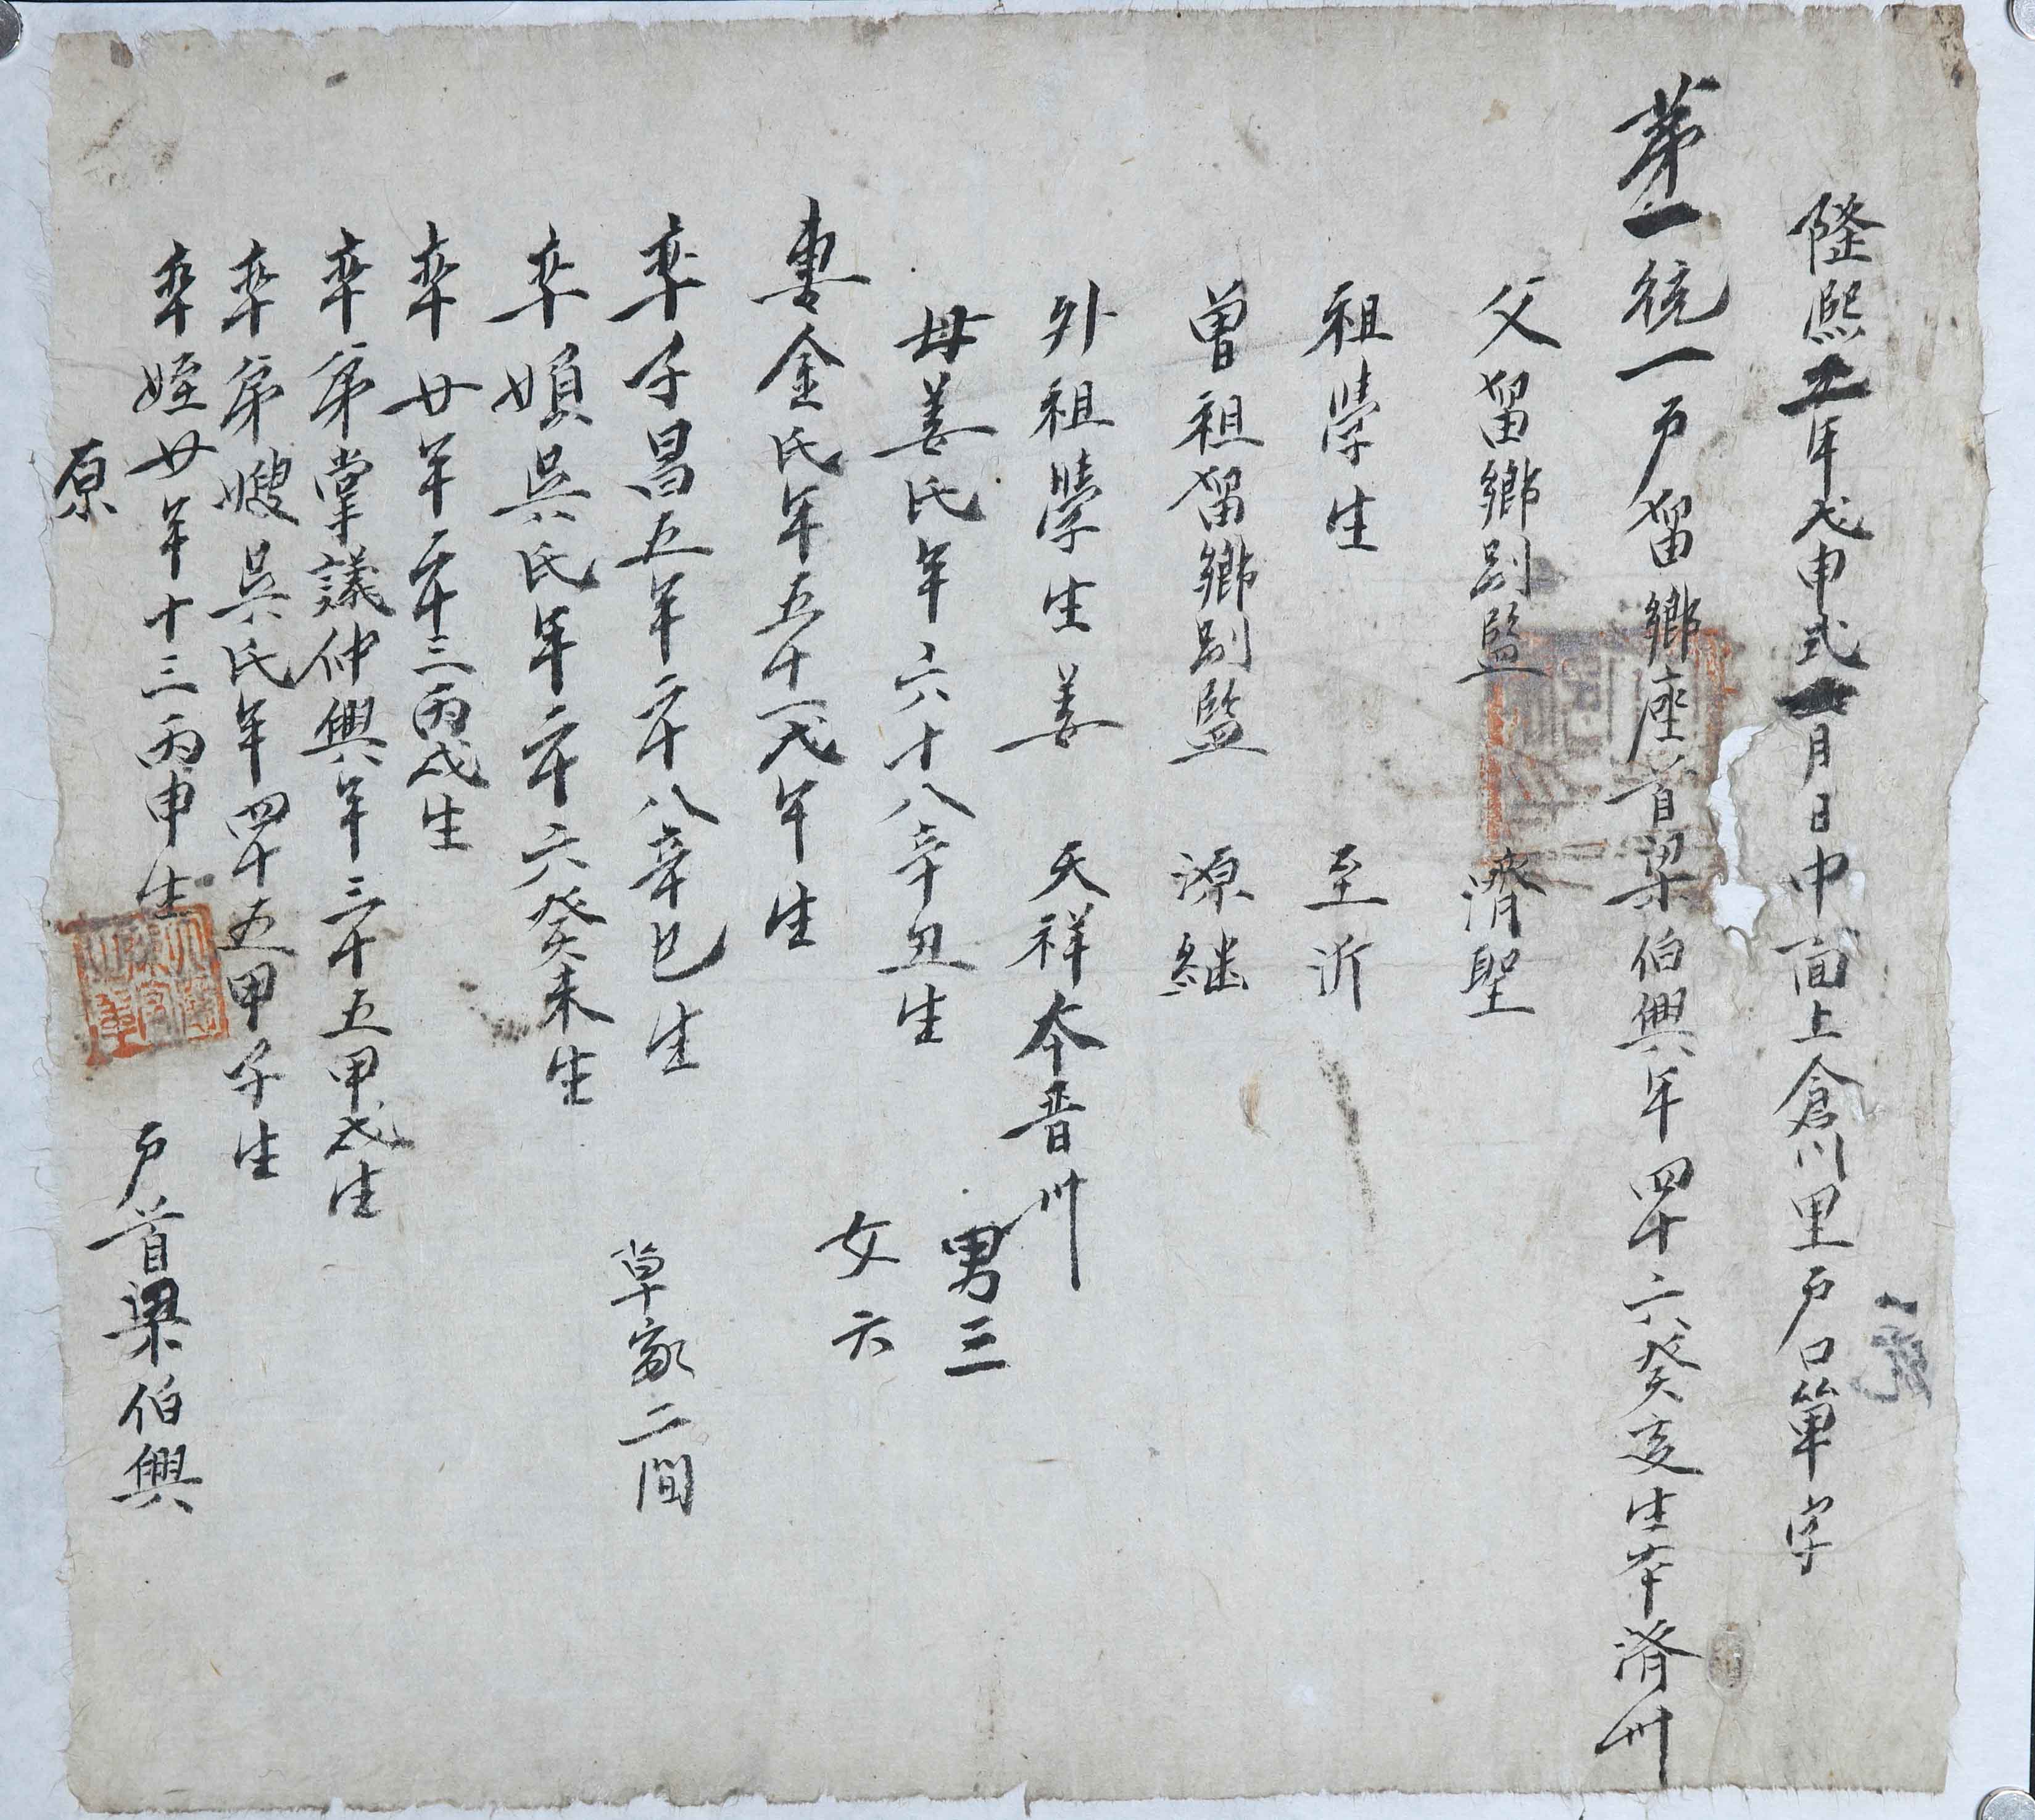 隆熙二年戊申式 月日中面上倉川里戶口單字
一號
第一統一戶留鄉座首梁伯興年四十六癸亥生本濟州
父留鄉別監 濟聖
祖學生 至沂
曾祖留鄉別監 源継
外祖學生姜 天祥本晋州
母姜氏年六十八辛丑生
男三
女六
妻金氏年五十一戊午生
率子昌五年二十八辛巳生
草家二間
率婦吳氏年二十六癸未生
率女年二十三丙戌生
率弟掌議仲興年三十五甲戌生
率弟嫂吳氏年四十五甲子生
率姪女年十三丙申生
戶首梁伯興
原